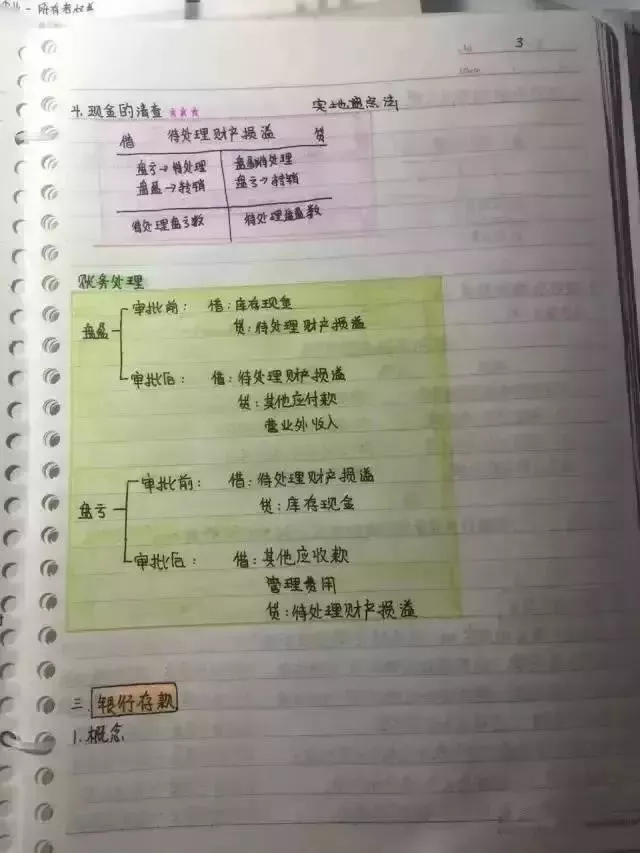 3
4.现金的清查 ★★★ 实地盘点法
借 待处理财产损溢 贷
盘亏→待处理 盘盈待处理
盘盈→转销 盘亏→转销
待处理盘亏数 待处理盘盈数
账务处理
盘盈 审批前: 借:库存现金
贷:待处理财产损溢
审批后: 借:待处理财产损溢
贷:其他应付款
营业外收入
盘亏 审批前: 借:待处理财产损溢
贷:库存现金
审批后: 借:其他应收款
管理费用
贷:待处理财产损溢
三.银行存款
1.概念